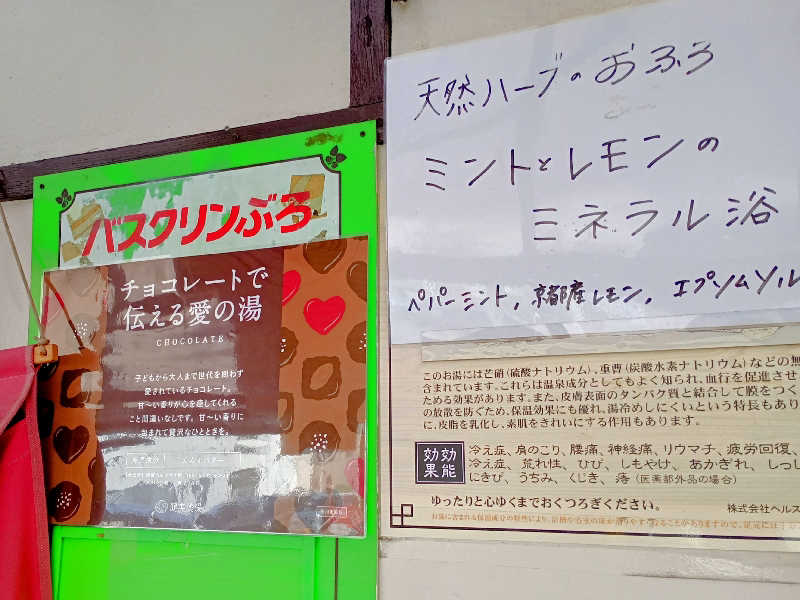 バスクリンぶろ
チョコレートで
伝える愛の湯
CHOCOLATE
子どもから大人まで世代を問わず
愛されているチョコレート。
甘〜い香りが心を癒してくれる
こと間違いなしです。甘〜い香りに
包まれて贅沢なひとときを。
天然ハーブのおふろ
ミントとレモンの
ミネラル浴
ペパーミント，京都産レモン，エプソムソル
このお湯には芒硝(硫酸ナトリウム)、重曹(炭酸水素ナトリウム)などの無
含まれています。これらは温泉成分としてもよく知られ、血行を促進させ
ためる効果があります。また、皮膚表面のタンパク質と結合して膜をつく
の放散を防ぐため、保温効果にも優れ、湯冷めしにくいという特長もあり
に、皮脂を乳化し、素肌をきれいにする作用もあります。
効能
効果
冷え症、肩のこり、腰痛、神経痛、リウマチ、疲労回復、
冷え症、荒れ性、ひび、しもやけ、あかぎれ、しっし
にきび、うちみ、くじき、痔(医薬部外品の場合)
ゆったりと心ゆくまでおくつろぎください。
株式会社ヘルス